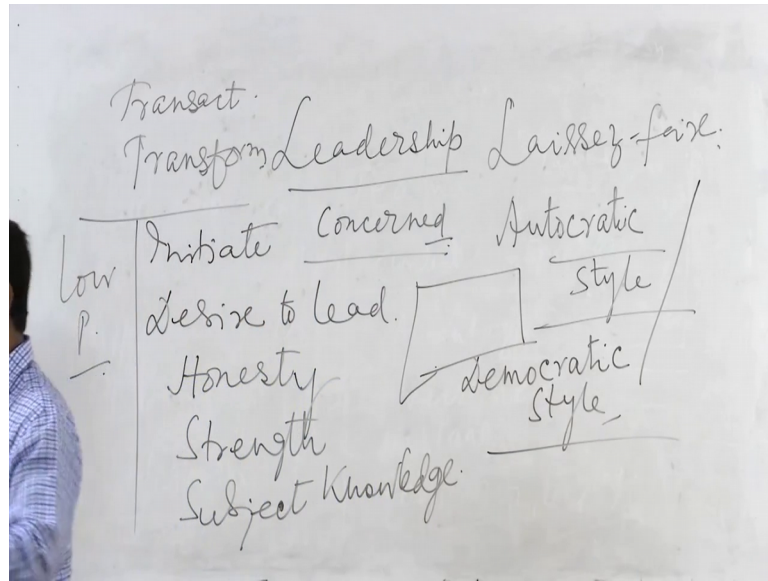 Transact.
Transform Leadership Laissez-faire.
Low P.
Initiate Concerned Autocratic Style
Desire to lead.
Honesty Democratic Style
Strength
Subject Knowledge.